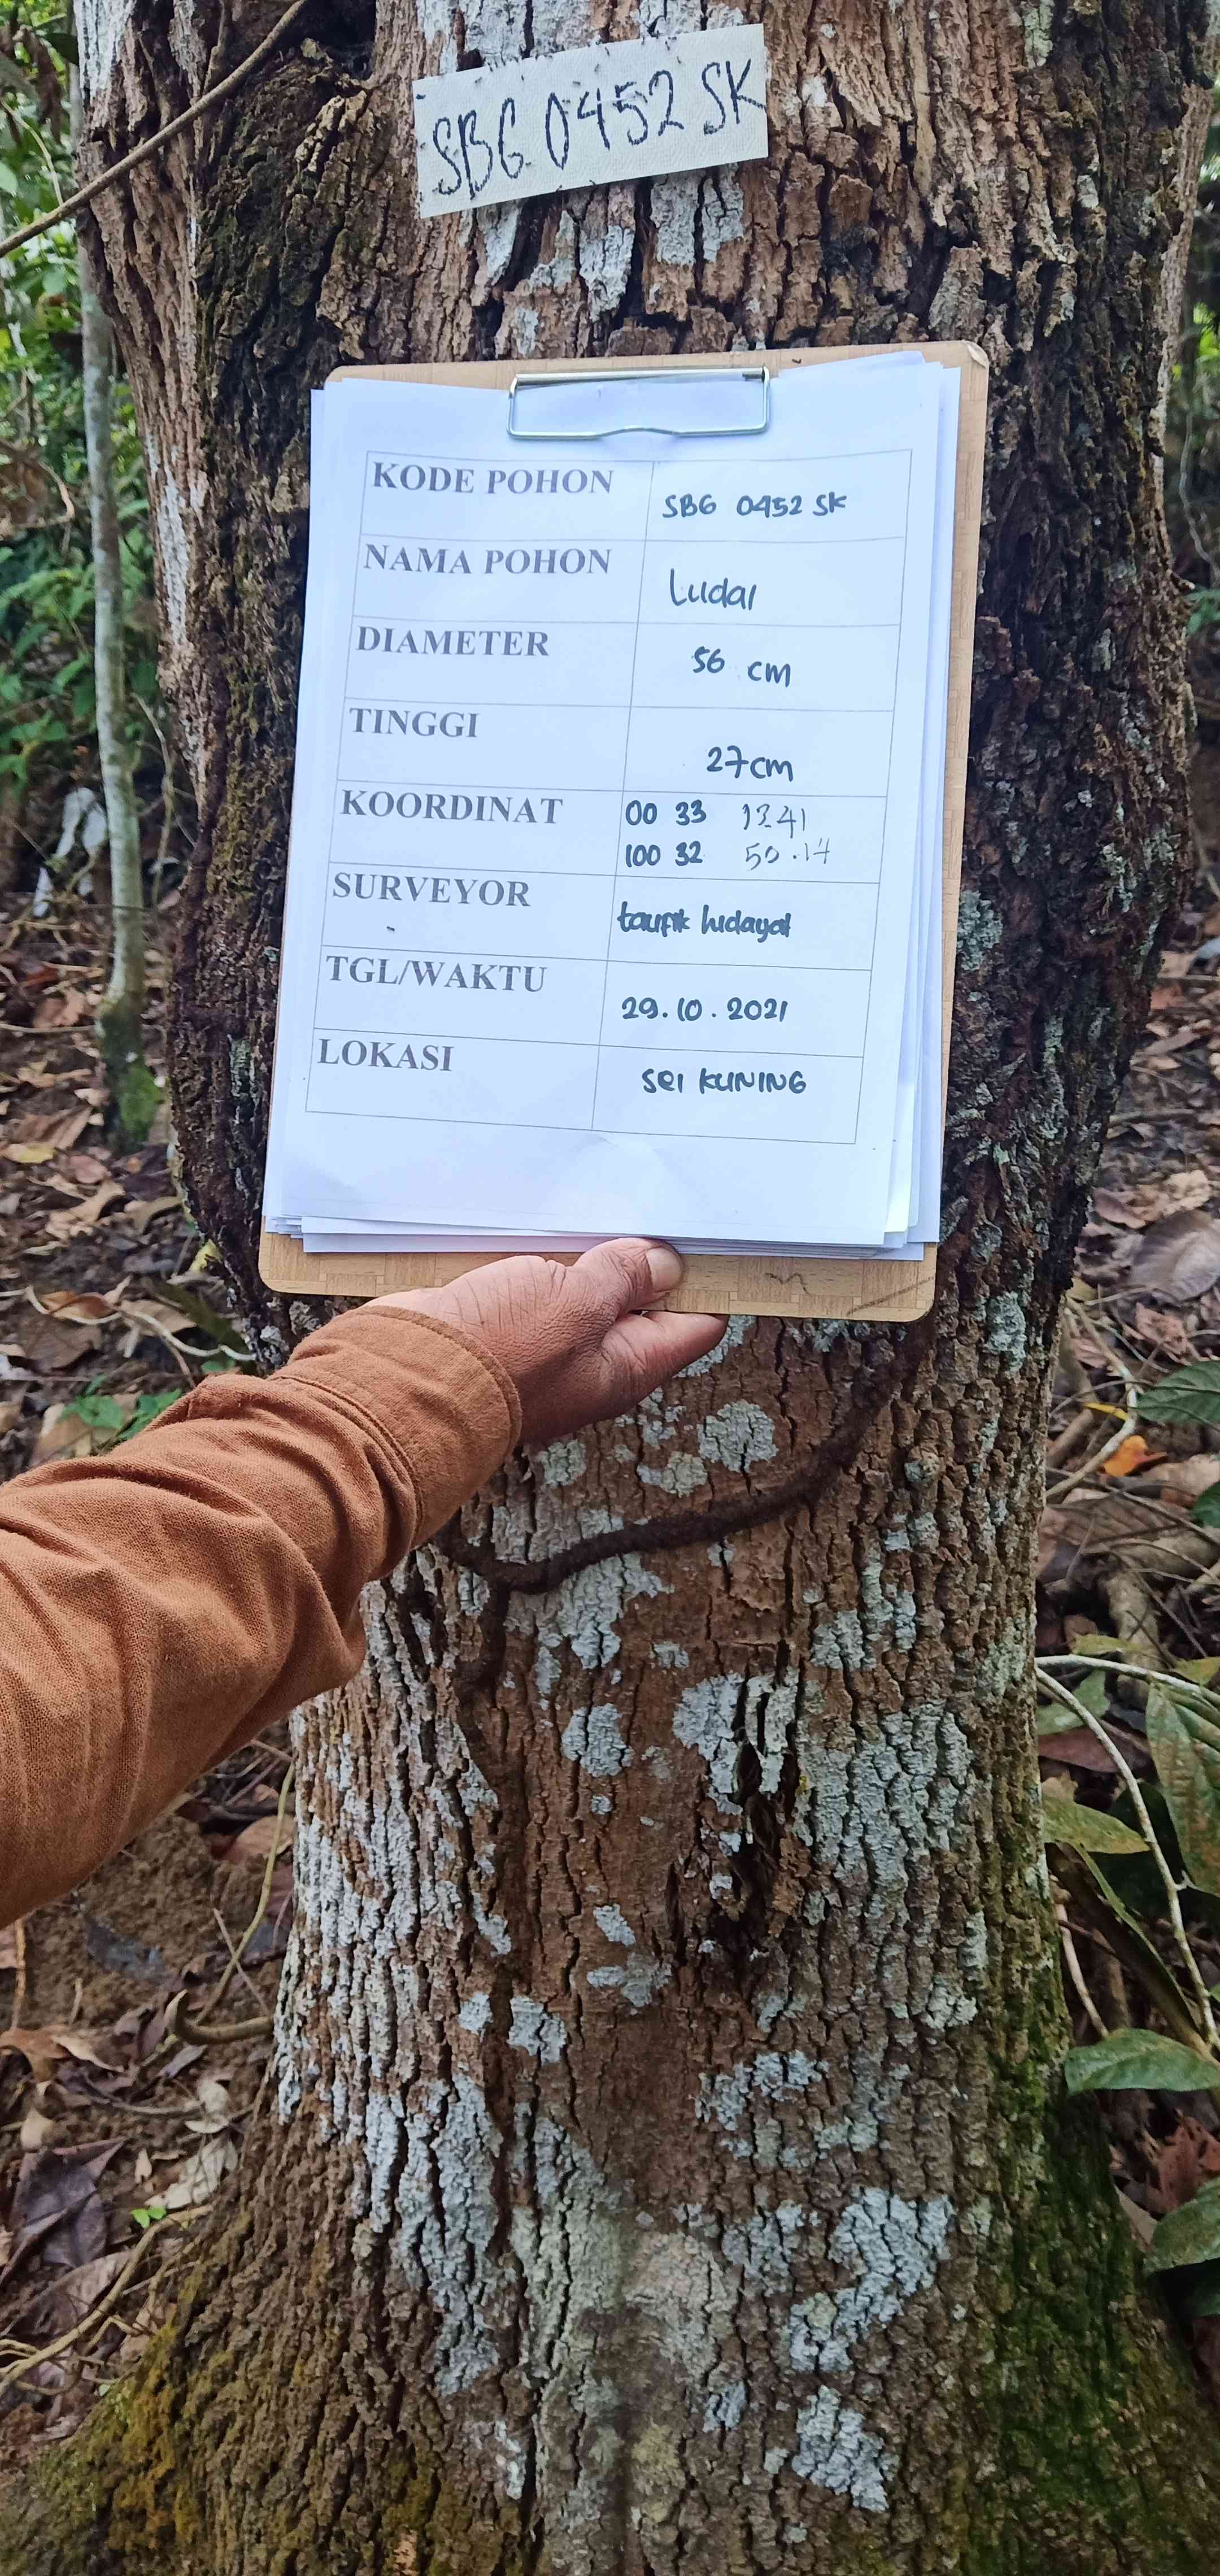 SBG 0452 SK
KODE POHON SBG 0452 SK
NAMA POHON Ludai
DIAMETER 56 cm
TINGGI 27cm
KOORDINAT 00 33 12.41
100 32 50.14
SURVEYOR taufik hidayat
TGL/WAKTU 29.10.2021
LOKASI SEI KUNING